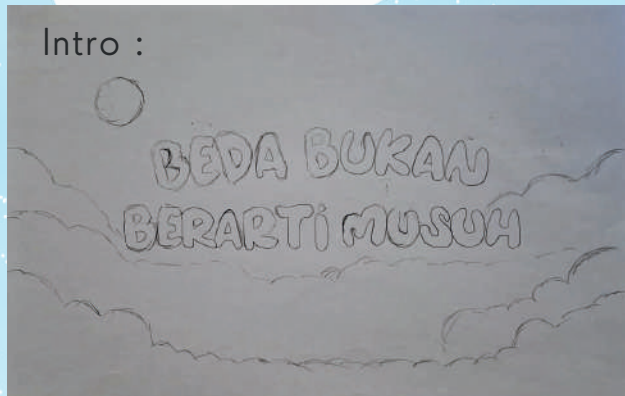 Intro :
BEDA BUKAN
BERARTi MUSUH